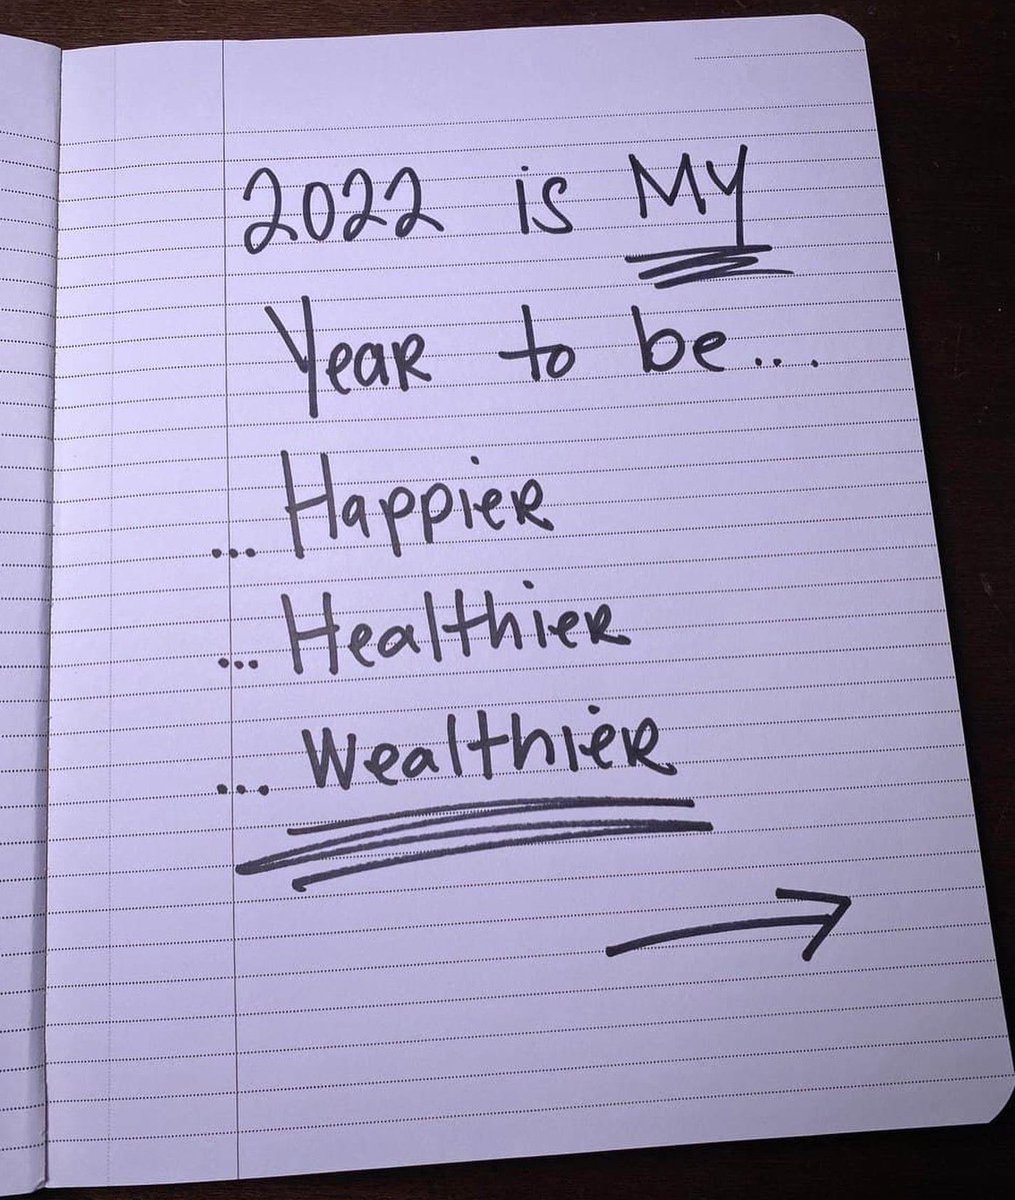 2022 is MY
Year to be...
...Happier
...Healthier
...Wealthier